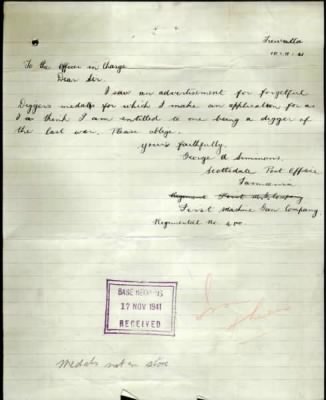 Trewalla
To the Officer in Charge
Dear Sir.
I saw an advertisement for forgetful
Diggers medals for which I make an application for as
I am think I am entitled to one being a digger of
the last war. Please oblige.
yours faithfully.
George A Simmons.
Scottsdale Post Office
Tasmania
Regiment First M. G. Company
First Machine Gun Company.
Regimental No 400
BASE RECORDS
17 NOV 1941
RECEIVED
Medals not in store